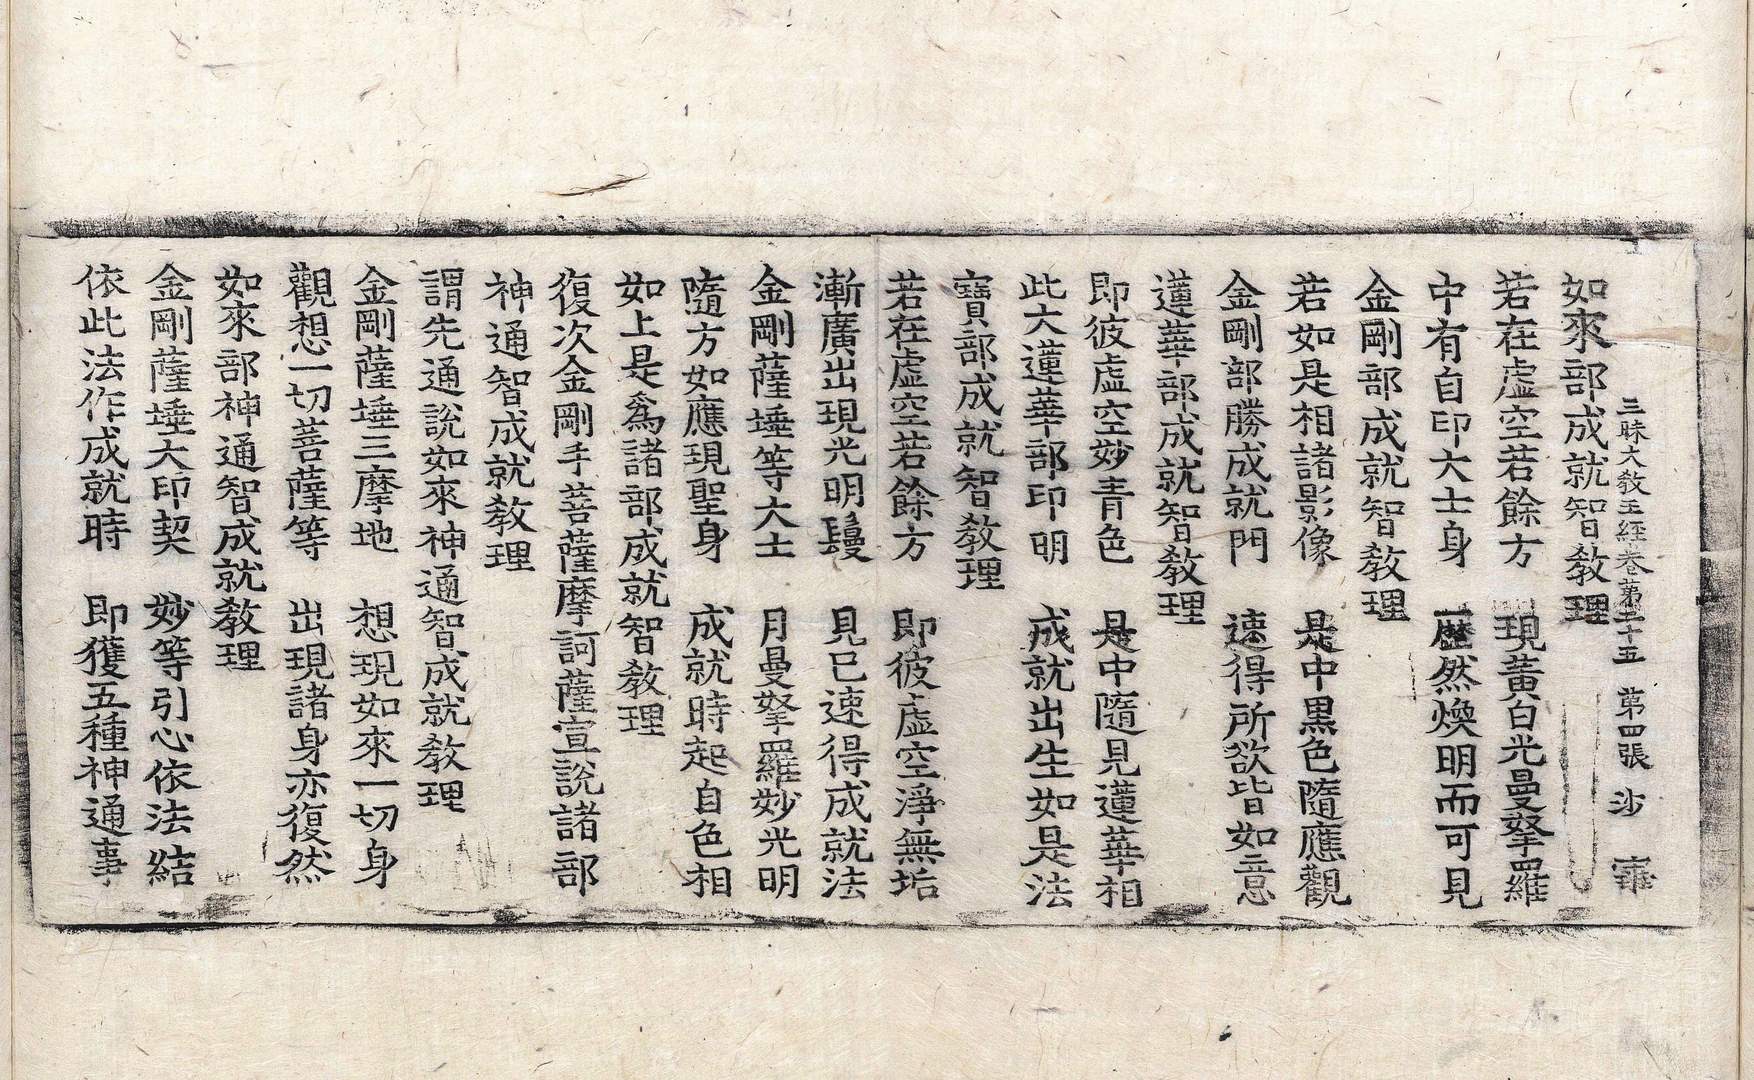 三昧大敎王經卷第二十五　第四張　沙
如來部成就智敎理
若在虛空若餘方　現黃白光曼拏羅
中有自印大士身　歷然煥明而可見
金剛部成就智敎理
若如是相諸影像　是中黑色隨應觀
金剛部勝成就門　速得所欲皆如意
蓮華部成就智敎理
即彼虛空妙靑色　是中隨見蓮華相
此大蓮華部印明　成就出生如是法
寶部成就智敎理
若在虛空若餘方　即彼虛空淨無垢
漸廣出現光明鬘　見已速得成就法
金剛薩埵等大士　月曼拏羅妙光明
隨方如應現聖身　成就時起自色相
如上是爲諸部成就智敎理
復次金剛手菩薩摩訶薩宣說諸部
神通智成就敎理
謂先通說如來神通智成就敎理
金剛薩埵三摩地　想現如來一切身
觀想一切菩薩等　出現諸身亦復然
如來部神通智成就敎理
金剛薩埵大印契　妙等引心依法結
依此法作成就時　即獲五種神通事